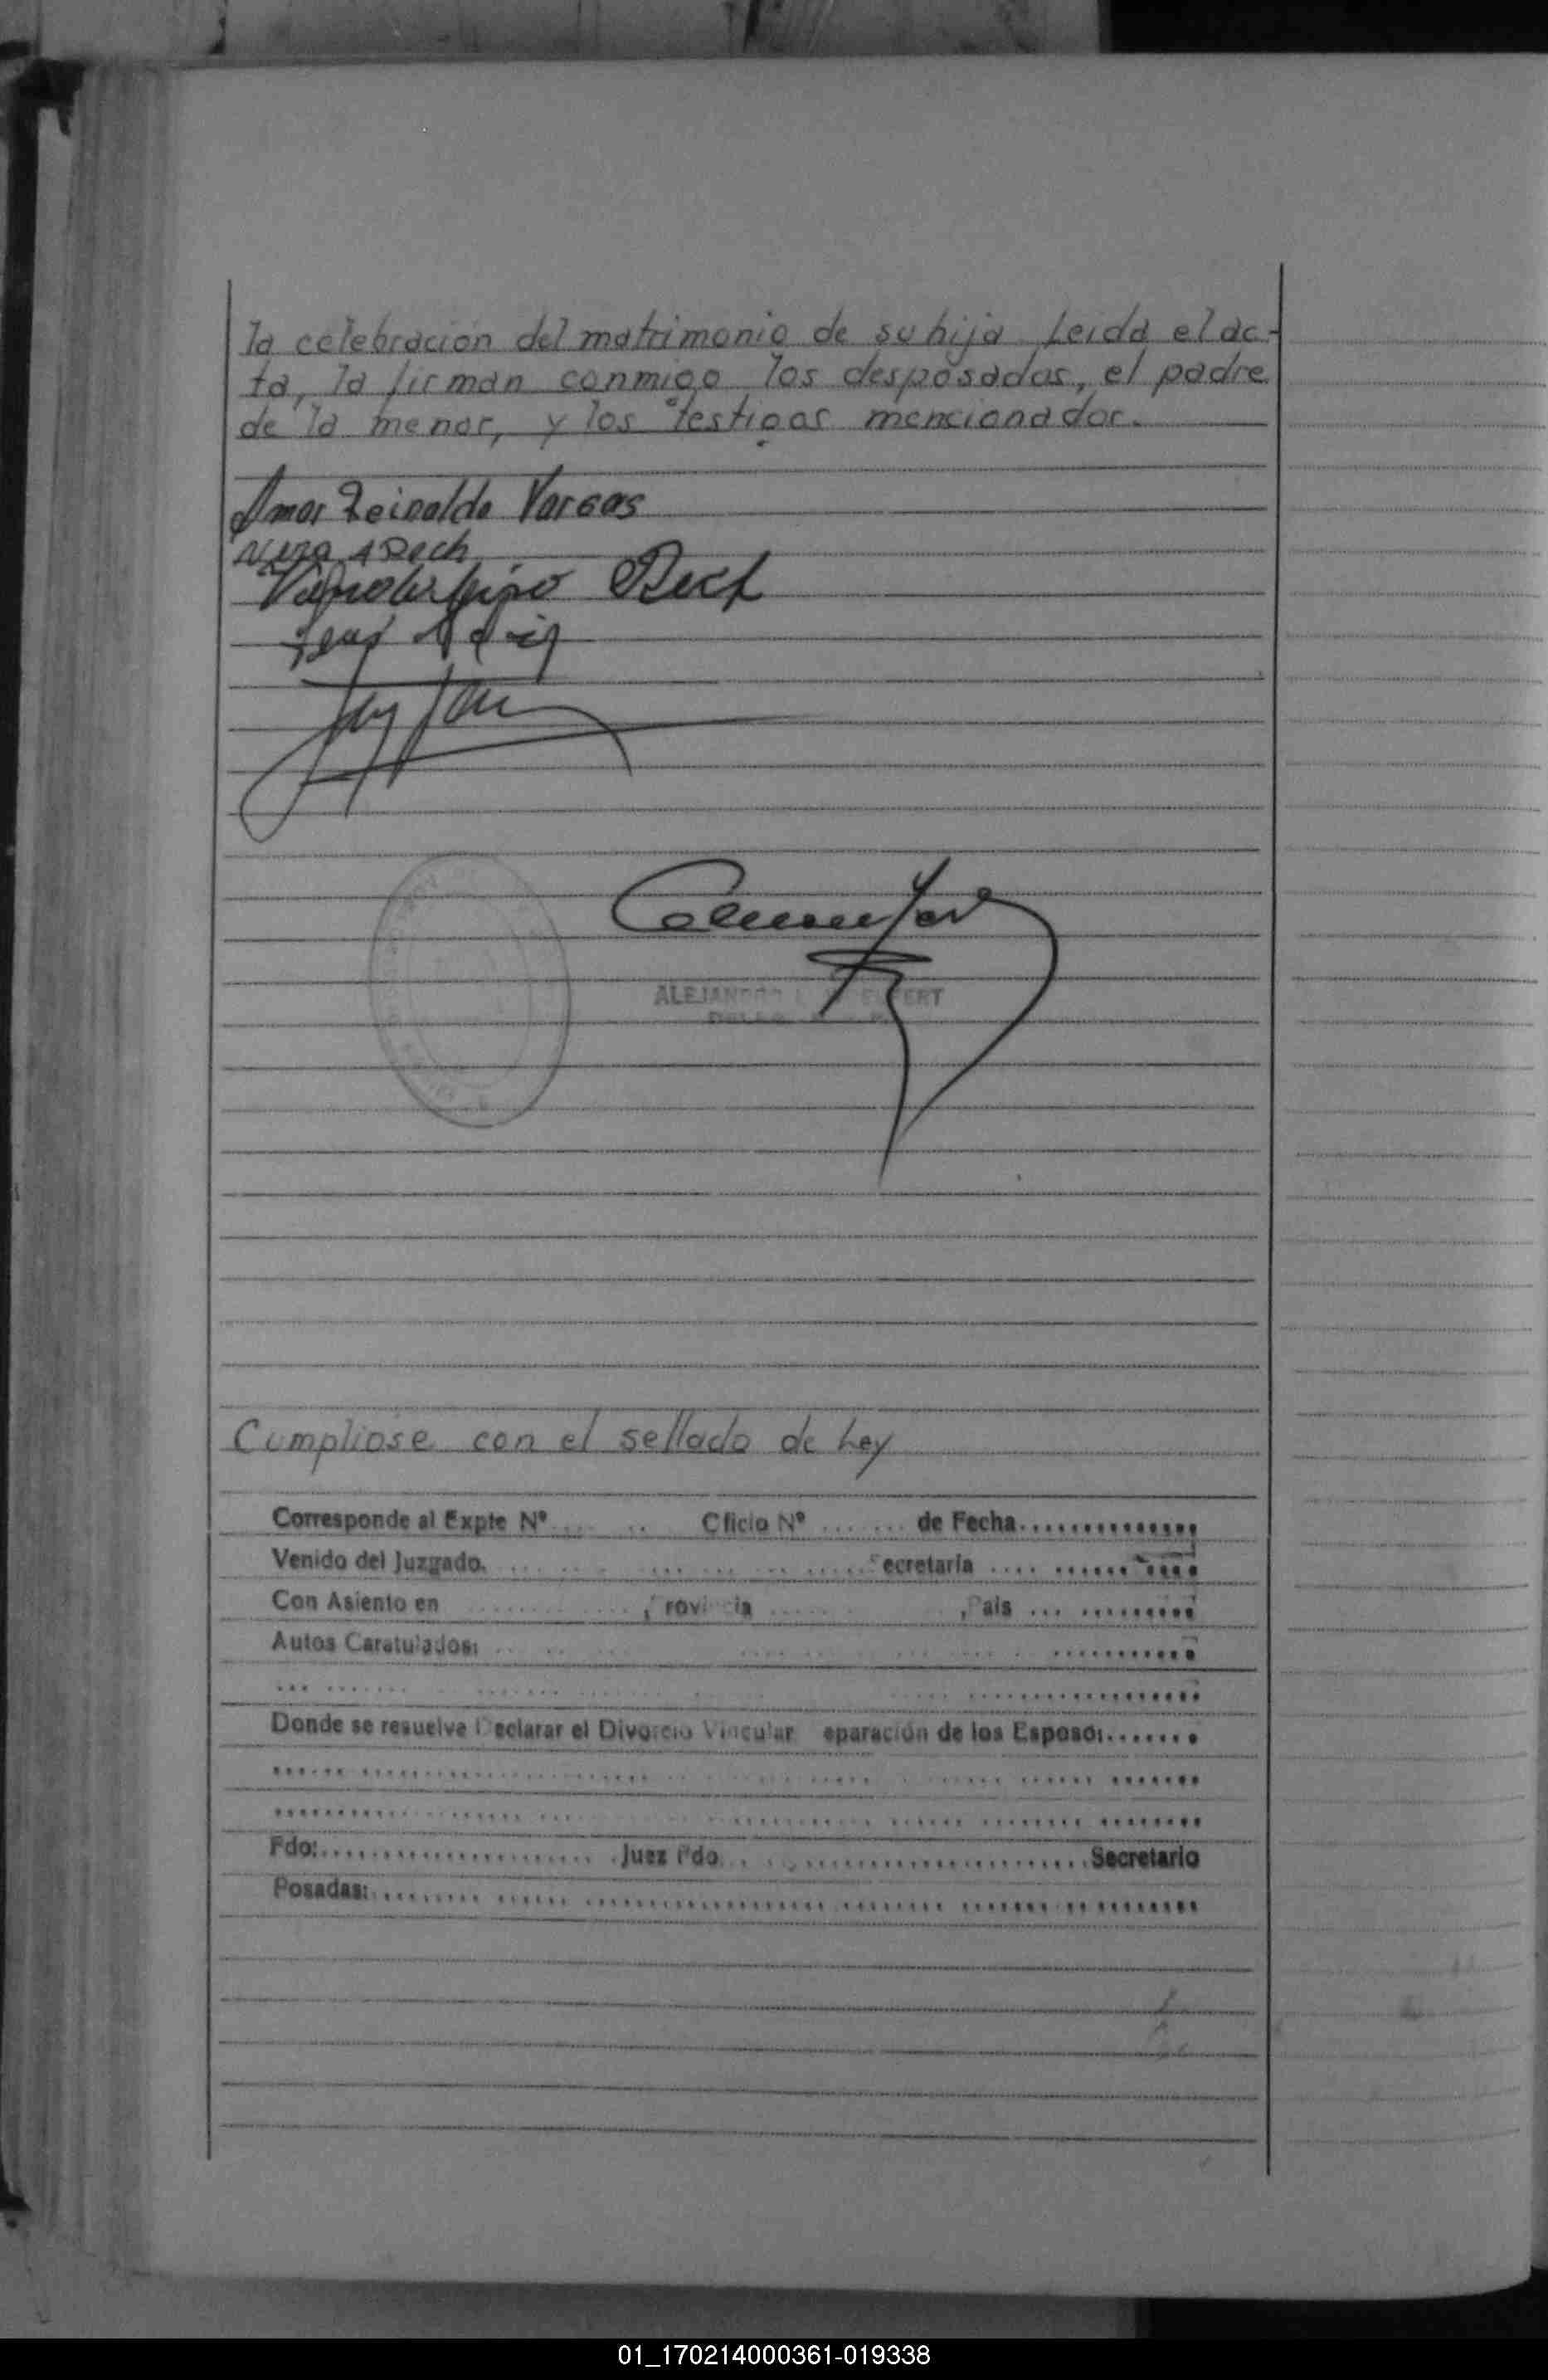 la celebración del matrimonio de su hija. Leida el ac-
ta, la firman conmigo los desposados, el padre
de la menor, y los testigos mencionados.
Omar Reinaldo Vargas
Rech
ALEJANDRO
Cumpliose con el sellado de Ley
Corresponde al Expte Nº .... .. Oficio Nº ....... de Fecha...............
Venido del Juzgado. ..... ecretaría .... ..........
Con Asiento en ............. , rovincia ...... ,Pais ... ..........
Autos Caratulados: ... ...........
Donde se resuelve Declarar el Divorcio Vincular eparación de los Esposos........
Fdo:....................... .Juez Fdo... .......................Secretario
Posadas:......... ...... ................... ........ ....... .. ........
01_170214000361-019338